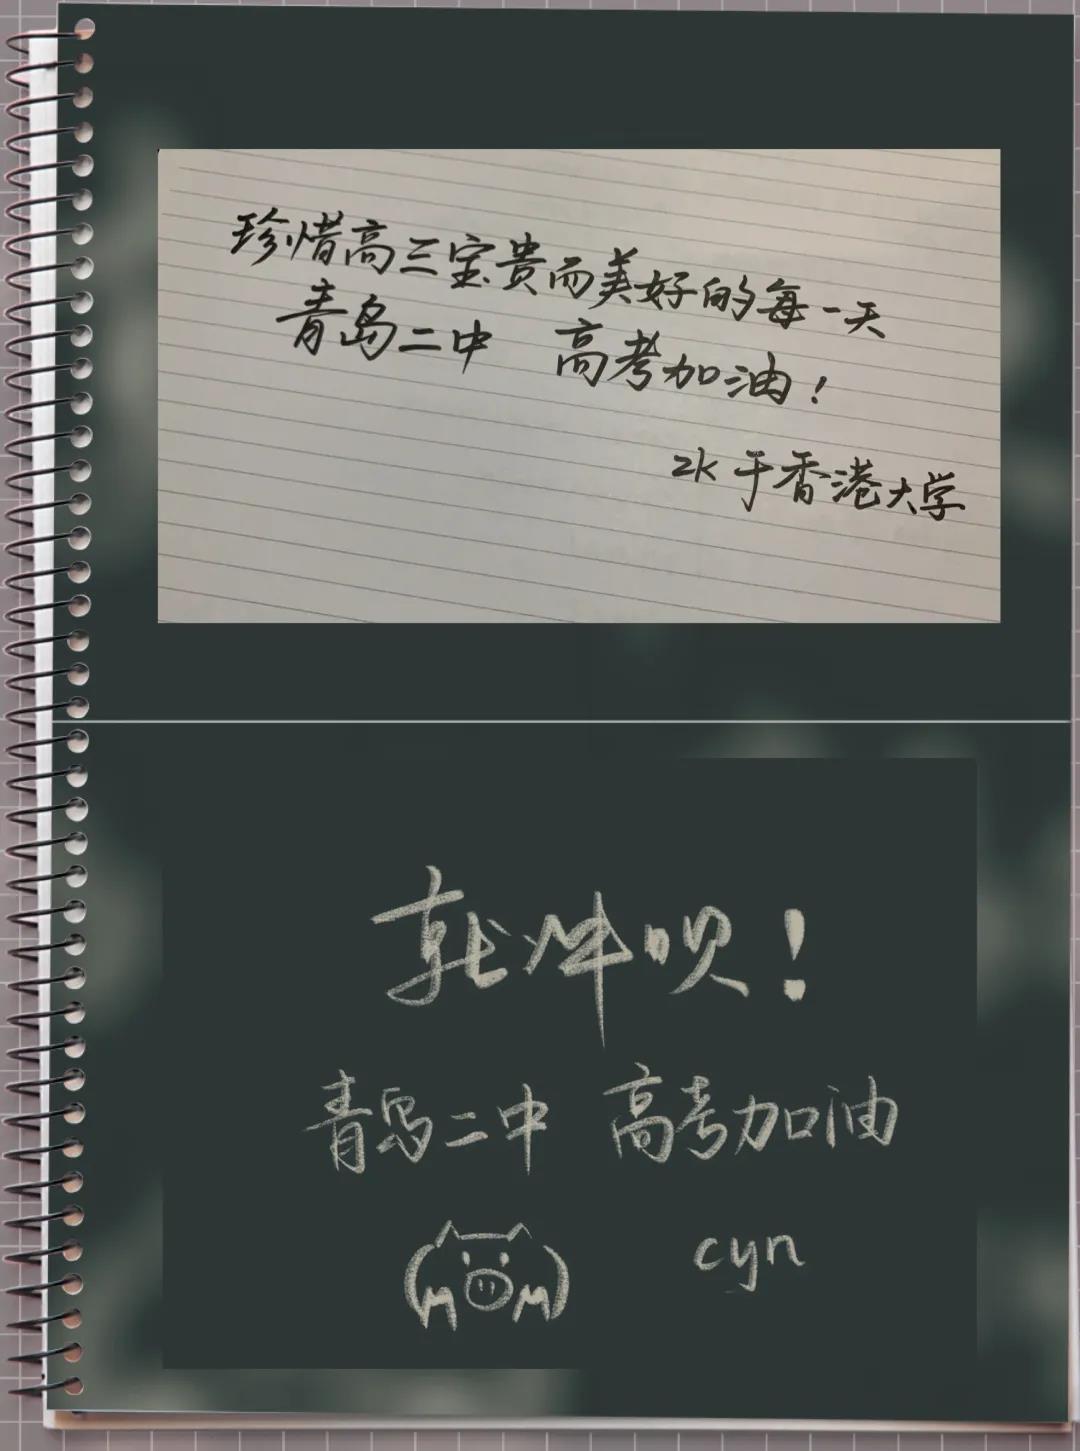 珍惜高三宝贵而美好的每一天
青岛二中 高考加油！
zk 于香港大学
就冲呗！
青岛二中 高考加油
cyn